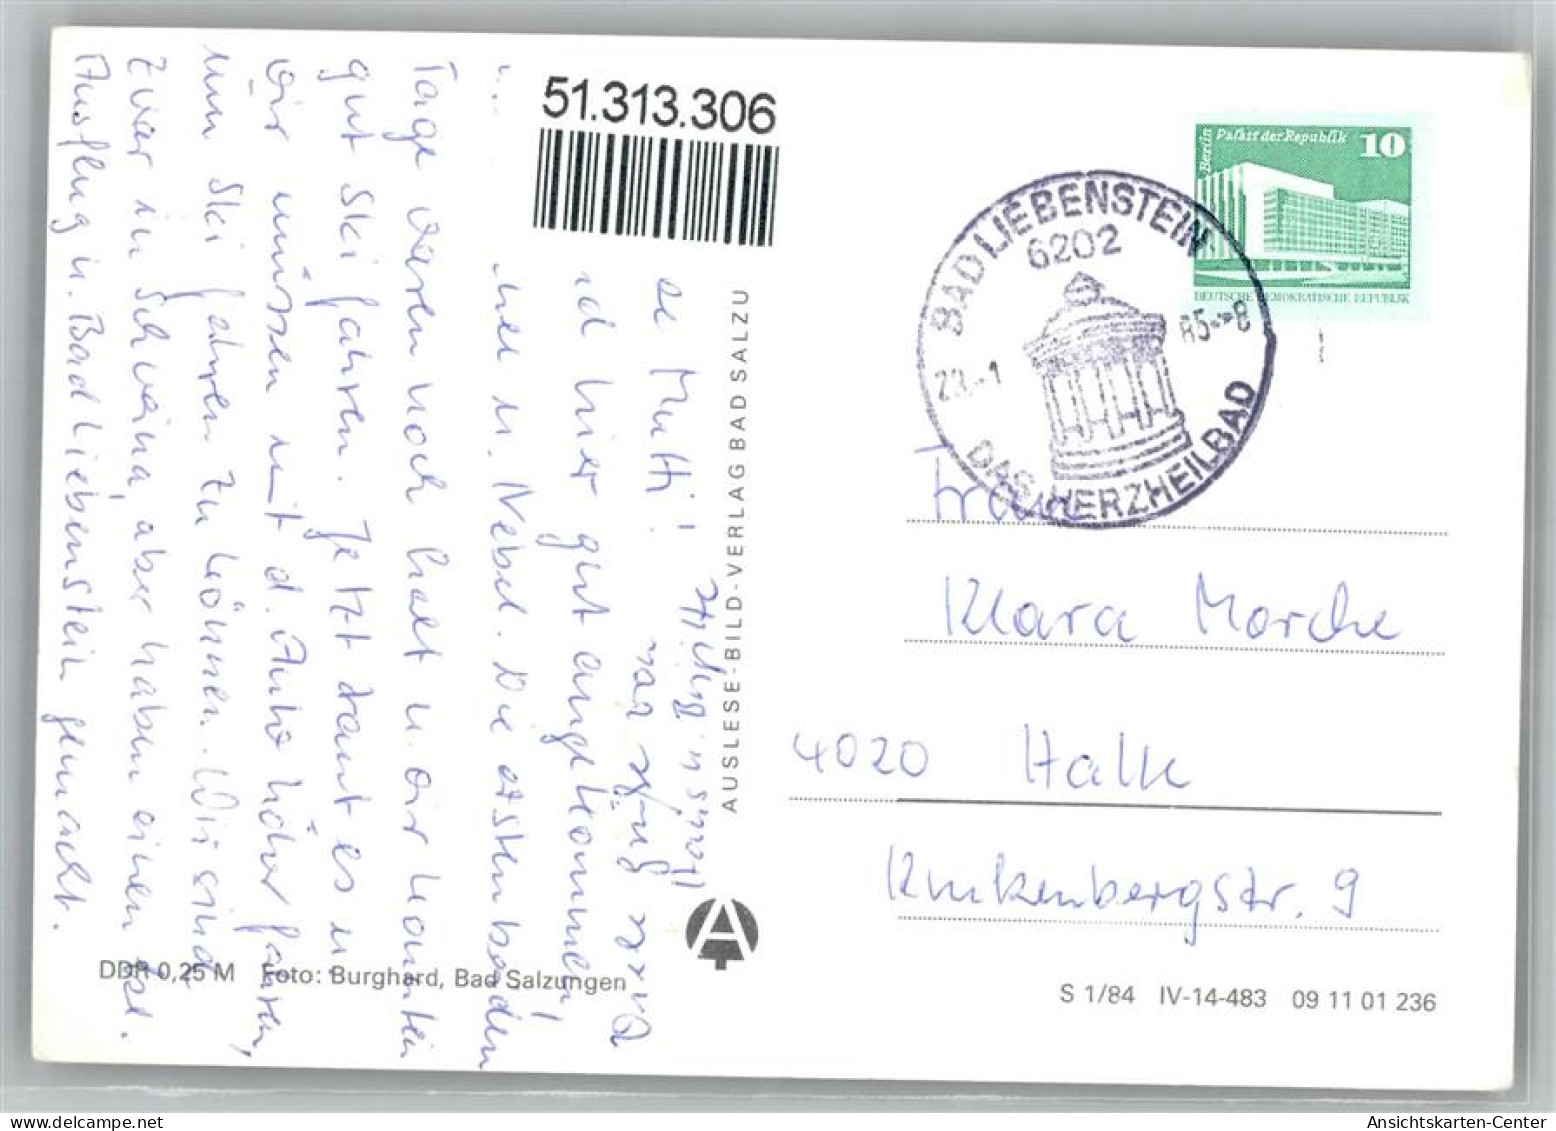 51.313.306
Berlin Palast der Republik 10
DEUTSCHE DEMOKRATISCHE REPUBLIK
BAD LIEBENSTEIN
6202
23.-1
85-8
DAS HERZHEILBAD
Mutti!
hier gut angekommen,
u. Nebel. Die ersten beiden
Tage waren noch kalt u. wir konnten
gut Ski fahren. Jetzt taut es u.
wir müssen mit d. Auto höher fahren,
um Ski fahren zu können. Wir sind
zwar in Schweina, aber haben einen
Ausflug n. Bad Liebenstein gemacht.
u. Birgit
AUSLESE-BILD-VERLAG BAD SALZU
A
Frau
Klara
4020 Halle
9
DDR 0,25 M Foto: Burghard, Bad Salzungen
S 1/84 IV-14-483 09 11 01 236
Ansichtskarten-Center